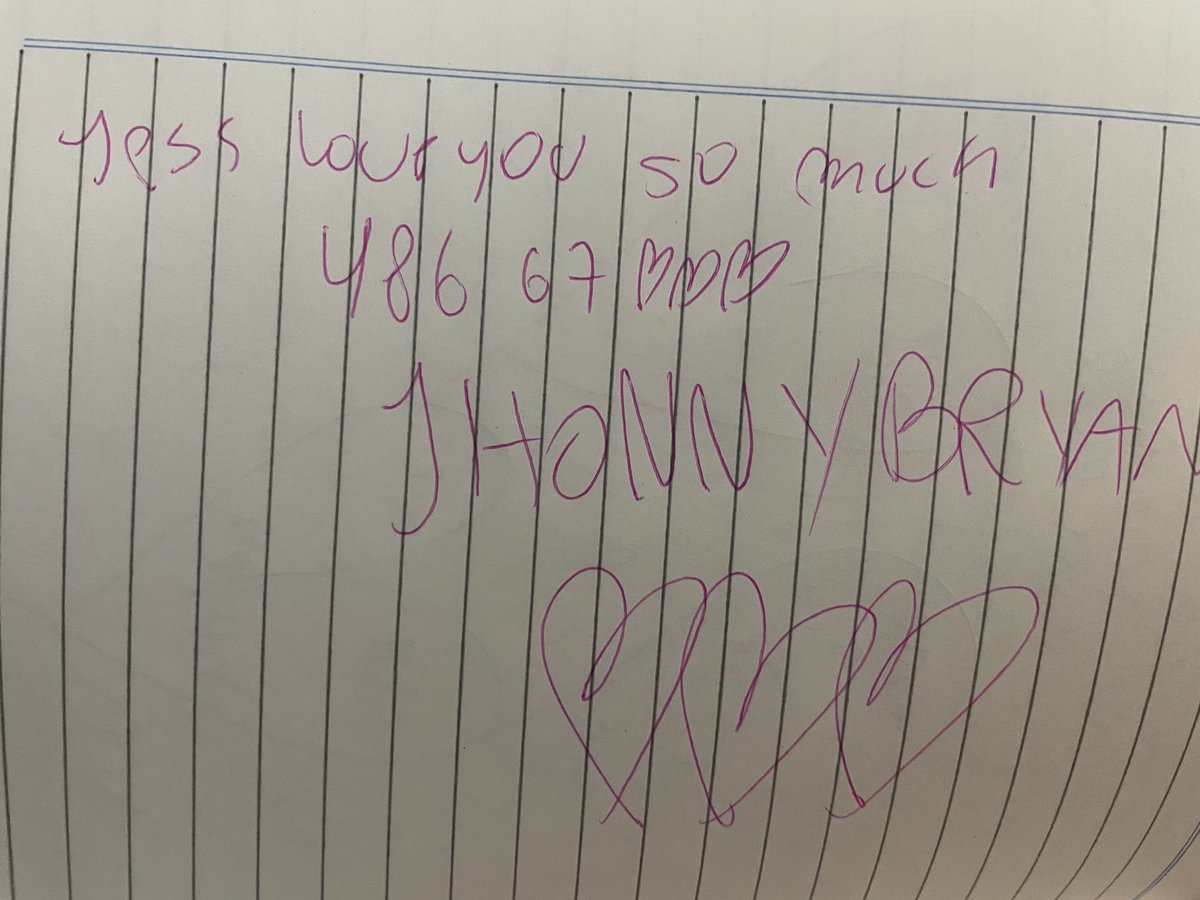 yess love you so much
486 67 ♡♡♡
JHONNY BRYAN